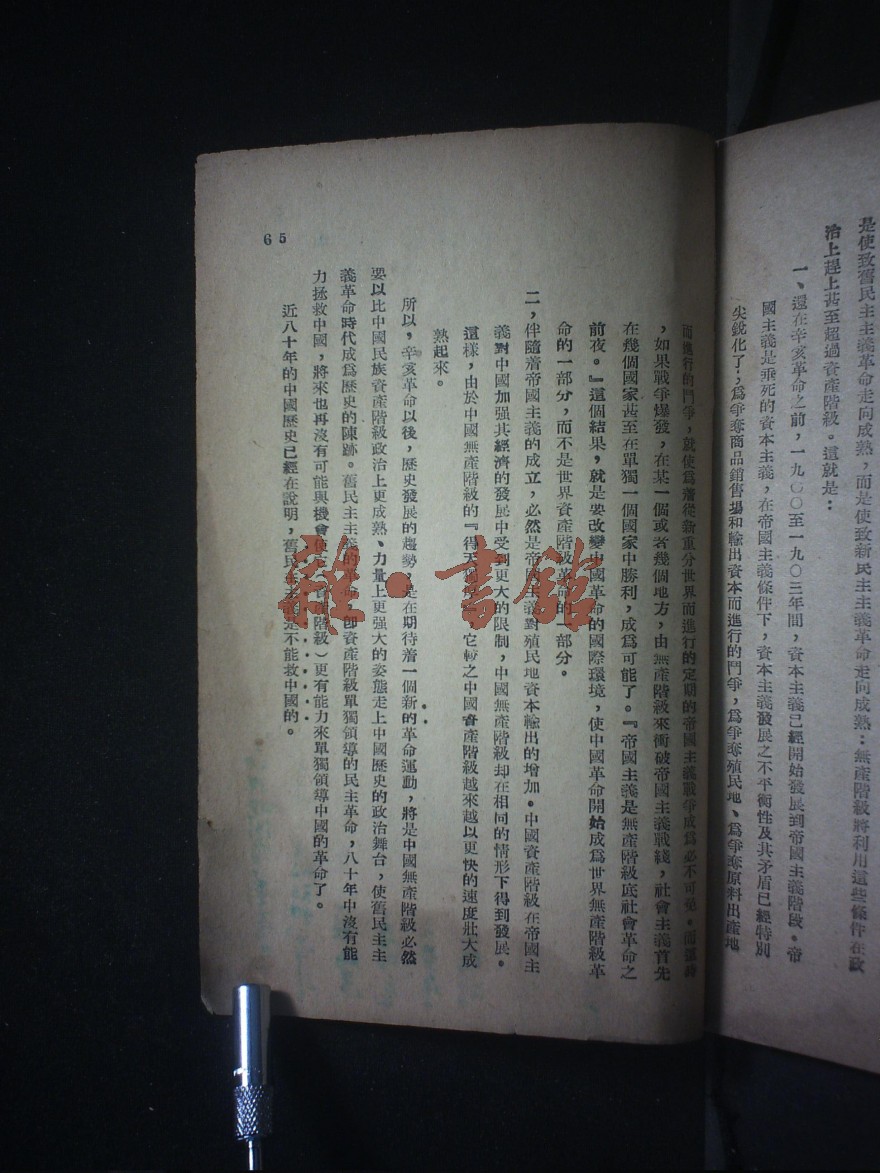 是使致舊民主主義革命走向成熟,而是使致新民主主義革命走向成熟:無產階級將利用這些條件在政
治上趕上甚至超過資產階級。這就是:
一、還在辛亥革命之前,一九〇〇至一九〇三年間,資本主義已經開始發展到帝國主義階段。帝
國主義是垂死的資本主義,在帝國主義條件下,資本主義發展之不平衡性及其矛盾已經特別
尖銳化了;爲爭奪商品銷售場和輸出資本而進行的鬥爭,爲爭奪殖民地、爲爭奪原料出產地
而進行的鬥爭,就使爲着從新重分世界而進行的定期的帝國主義戰爭成爲必不可免。而這時
,如果戰爭爆發,在某一個或者幾個地方,由無產階級來衝破帝國主義戰綫,社會主義首先
在幾個國家甚至在單獨一個國家中勝利,成爲可能了。『帝國主義是無產階級底社會革命之
前夜。』這個結果,就是要改變中國革命的國際環境,使中國革命開始成爲世界無產階級革
命的一部分,而不是世界資產階級革命的一部分。
二,伴隨着帝國主義的成立,必然是帝國主義對殖民地資本輸出的增加。中國資產階級在帝國主
義對中國加强其經濟的發展中受到更大的限制,中國無產階級却在相同的情形下得到發展。
這樣,由於中國無產階級的『得天獨厚』,它較之中國資產階級越來越以更快的速度壯大成
熟起來。
所以,辛亥革命以後,歷史發展的趨勢,是在期待着一個新的革命運動,將是中國無產階級必然
要以比中國民族資產階級政治上更成熟、力量上更强大的姿態走上中國歷史的政治舞台,使舊民主主
義革命時代成爲歷史的陳跡。舊民主主義的革命,即資產階級單獨領導的民主革命,八十年中沒有能
力拯救中國,將來也再沒有可能與機會使它(資產階級)更有能力來單獨領導中國的革命了。
近八十年的中國歷史已經在說明,舊民主主義是不能救中國的。
65
雜·書館